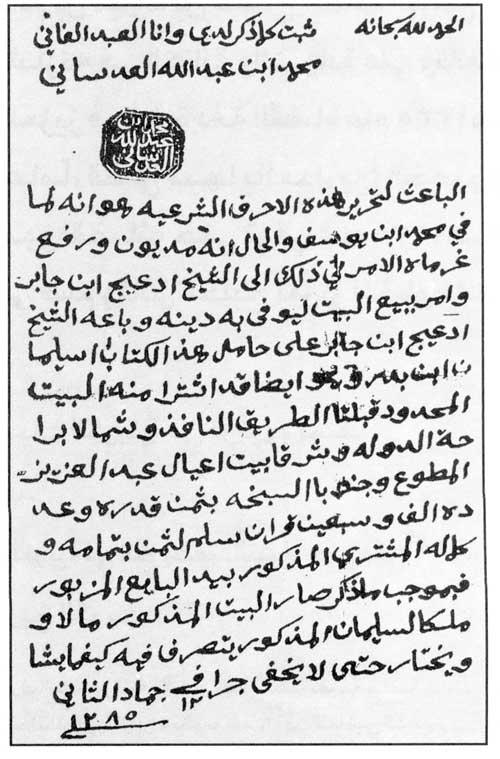 الحمد لله سبحانه
ثبت كلما ذكر لدي وانا العبد الفاني
محمد ابن عبدالله العدساني
محمد بن عبدالله العدساني
الباعث لتحرير هذه الاحرف الشرعيه هو انه لما
في محمد ابن يوسف والحال انه مديون ورفع
غرماه الامر في ذلك الى الشيخ ادعيج ابن جابر
وامر ببيع البيت ليوفى به دينه وباعه الشيخ
ادعيج ابن جابر على حامل هذا الكتاب اسليما
ن ابن بدر وهو ايضا قد اشترا منه البيت
المحدود قبلتا الطريق النافذ وشمالا برا
حة الدوله وشرقا بيت اعيال عبد العزيز
المطوع وجنوبا السبخه بثمن قدره وعد
ده الف وسبعين قران سلم الثمن بتمامه و
كماله المشتري المذكور بيد البايع المزبور
فبموجب ماذكر صار البيت المذكور مالا و
ملكا لسليمان المذكور يتصرف فيه كيفما يشا
ويختار حتى لا يخفى جرا في ١٢ جمادا الثاني
١٢٨٥